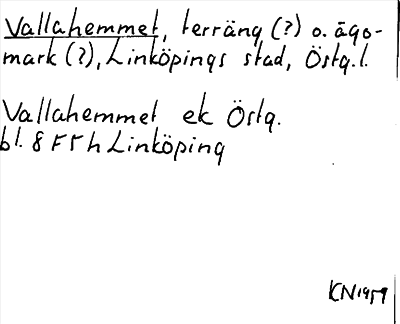 Vallahemmet, terräng (?) o. ägo-
mark (?), Linköpings stad, Östg.l.
Vallahemmet ek Östg.
bl. 8 F 5 h Linköping
KN 1959